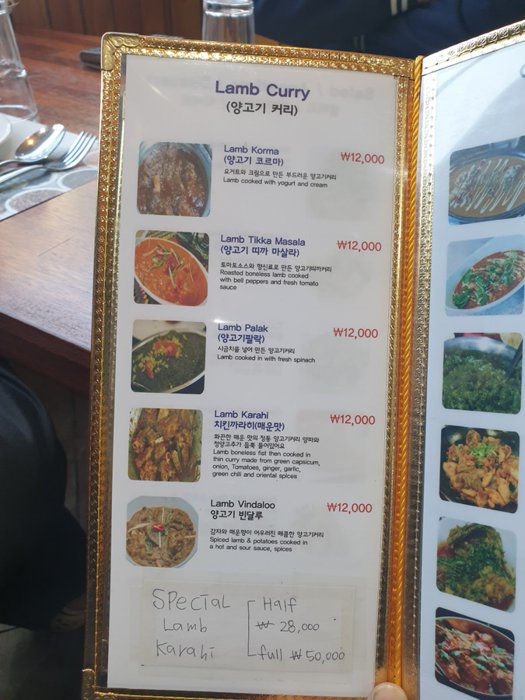 Lamb Curry
(양고기 커리)
Lamb Korma
(양고기 코르마)
₩12,000
요거트와 크림으로 만든 부드러운 양고기커리
Lamb cooked with yogurt and cream
Lamb Tikka Masala
(양고기 띠까 마살라)
₩12,000
토마토소스와 향신료로 만든 양고기띠까커리
Roasted boneless lamb cooked
with bell peppers and fresh tomato
sauce
Lamb Palak
(양고기팔락)
₩12,000
시금치를 넣어 만든 양고기커리
Lamb cooked in with fresh spinach
Lamb Karahi
치킨까라히(매운맛)
₩12,000
화끈한 매운 맛의 정통 양고기커리 양파와
청양고추가 듬뿍 들어있어요
Lamb boneless fist then cooked in
thin curry made from green capsicum,
onion, Tomatoes, ginger, garlic,
green chili and oriental spices
Lamb Vindaloo
양고기 빈달루
₩12,000
감자와 매운향이 어우러진 매콤한 양고기커리
Spiced lamb & potatoes cooked in
a hot and sour sauce, spices
Special Half
Lamb ₩ 28,000
Karahi full ₩ 50,000